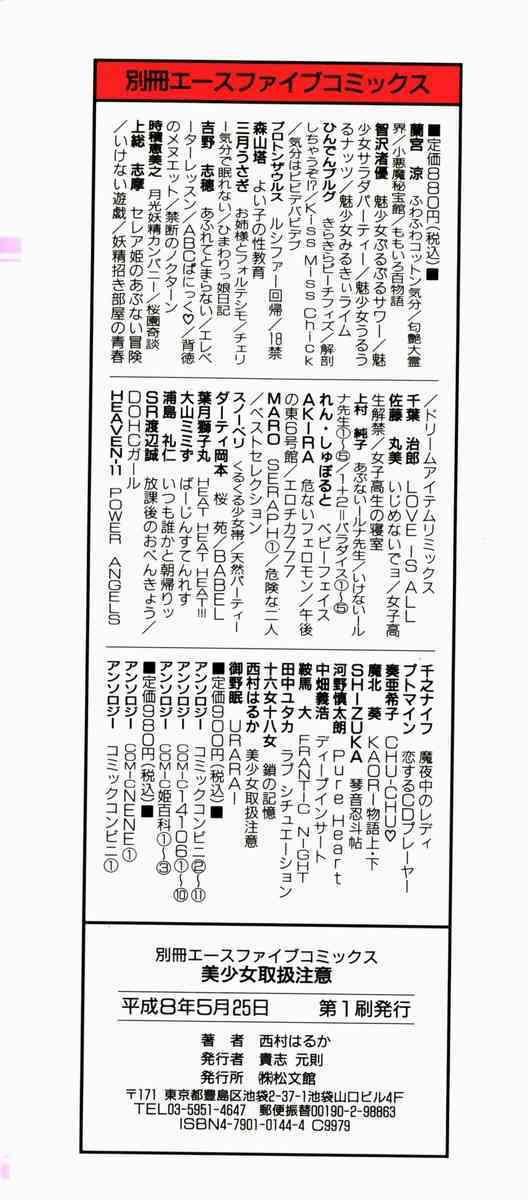 別冊エースファイブコミックス
■定価880円(税込)■
蘭宮 涼 ふわふわコットン気分/匂艶大霊
界/小悪魔秘宝館/ももいろ百物語
智沢渚優 魅少女ぷるぷるサワー/魅
少女サラダパーティー/魅少女うるう
るナッツ/魅少女みるきぃライム
ひんでんブルグ きらきらピーチフィズ/解剖
しちゃうぞ!?/Kiss Miss Chick
/気分はビビデバビデブ
プロトンザウルス ルシファー回帰/18禁
森山塔 よい子の性教育
三月うさぎ お姉様とフォルテシモ/チェリ
ー気分で眠れない/ひまわりっ娘日記
吉野 志穂 あふれてとまらない/エレベ
ーターレッスン/ABCぱにっく♡/背徳
のメヌエット/禁断のノクターン
時積恵美之 月光妖精カンパニー/桜園奇談
上総 志摩 セレア姫のあぶない冒険
/いけない遊戯/妖精招き部屋の青春
/ドリームアイテムリミックス
千葉 治郎 LOVE IS ALL
佐藤 丸美 いじめないでョ/女子高
生解禁/女子高生の寝室
上村 純子 あぶないルナ先生/いけないル
ナ先生①~⑤/1+2=パラダイス①~⑤
れん・しゅぽると ベビーフェイス
AKIRA 危ないフェロモン/午後
の東6号館/エロチカ777
MARO SERAPH①/危険な二人
/ベストセレクション
スノーベリ くるくる少女帯/天然パーティー
ダーティ岡本 桜 苑/BABEL
葉月獅子丸 HEAT HEAT HEAT!!!
大山ミミず ばーじんすてんれす
浦島 礼仁 いつも誰かと朝帰りッ
SR渡辺誠 放課後のおべんきょう/
DOHCガール
HEAVEN-11 POWER ANGELS
千之ナイフ 魔夜中のレディ
プトマイン 恋するCDプレーヤー
奏亜希子 CHU-CHU♡
魔北 葵 KAORI物語上・下
SHIZUKA 琴音忍斗帖
河野慎太朗 Pure Heart
中畑義浩 ディープインサート
鞍馬 大 FRANTIC NIGHT
田中ユタカ ラブ シチュエーション
十六女十八女 鎖の記憶
西村はるか 美少女取扱注意
御野眠 URARA!
■定価900円(税込)■
アンソロジー コミックコンビニ②~⑪
アンソロジー COMIC-I 4106①~⑩
アンソロジー COMIC姫百科①~③
■定価980円(税込)■
アンソロジー COMICNENE①
アンソロジー コミックコンビニ①
別冊エースファイブコミックス
美少女取扱注意
平成8年5月25日 第1刷発行
著 者 西村はるか
発行者 貴志 元則
発行所 ㈱松文館
〒171 東京都豊島区池袋2-37-1池袋山口ビル4F
TEL03-5951-4647 郵便振替00190-2-98863
ISBN4-7901-0144-4 C9979